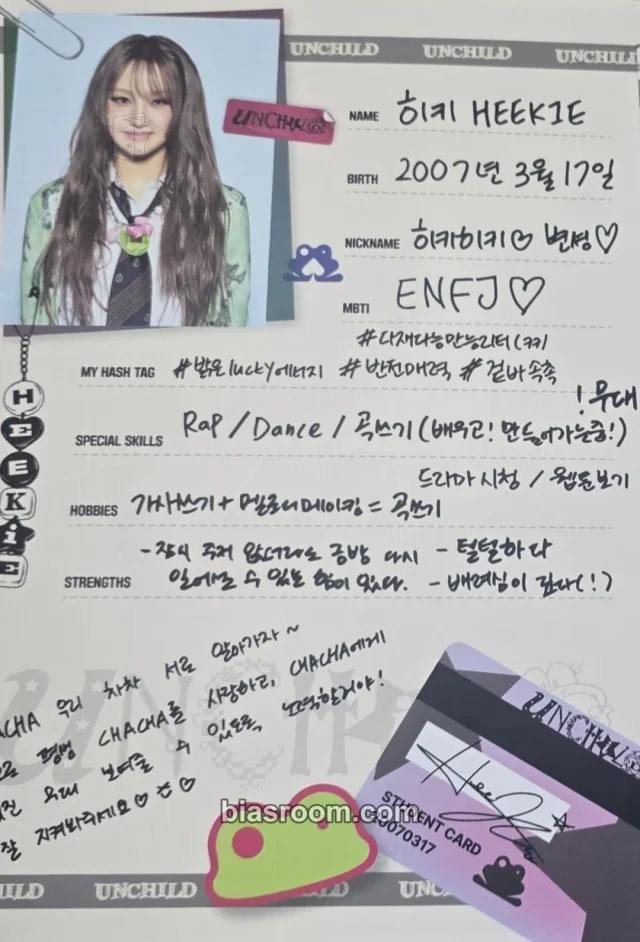 UNCHILD UNCHILD UNCHILD
UNCHILD
NAME 히키 HEEKIE
BIRTH 2007년 3월 17일
NICKNAME 히카히키♡ 변성♡
MBTI ENFJ♡
#다재다능만능리더(키키
MY HASH TAG #밝은lucky에너지 #반전매력 #겉바속촉
!무대
SPECIAL SKILLS Rap / Dance / 곡쓰기 (배우고! 만들어가는중!)
드라마 시청 / 웹툰보기
HOBBIES 가사쓰기 + 멜로디메이킹 = 곡쓰기
- 잠시 주저 앉더라도 금방 다시 - 털털하다
STRENGTHS 일어설 수 있는 힘이 있다. - 배려심이 깊다(!)
HEEKiE
CHACHA 우리 차차 서로 알아가자~
평생 CHACHA를 사랑하고, CHACHA에게
무대 보여줄 수 있도록 노력할거야!
잘 지켜봐주세요♡ ♡
UNCHILD
STUDENT CARD
20070317
biasroom.com
UNCHILD UNCHILD